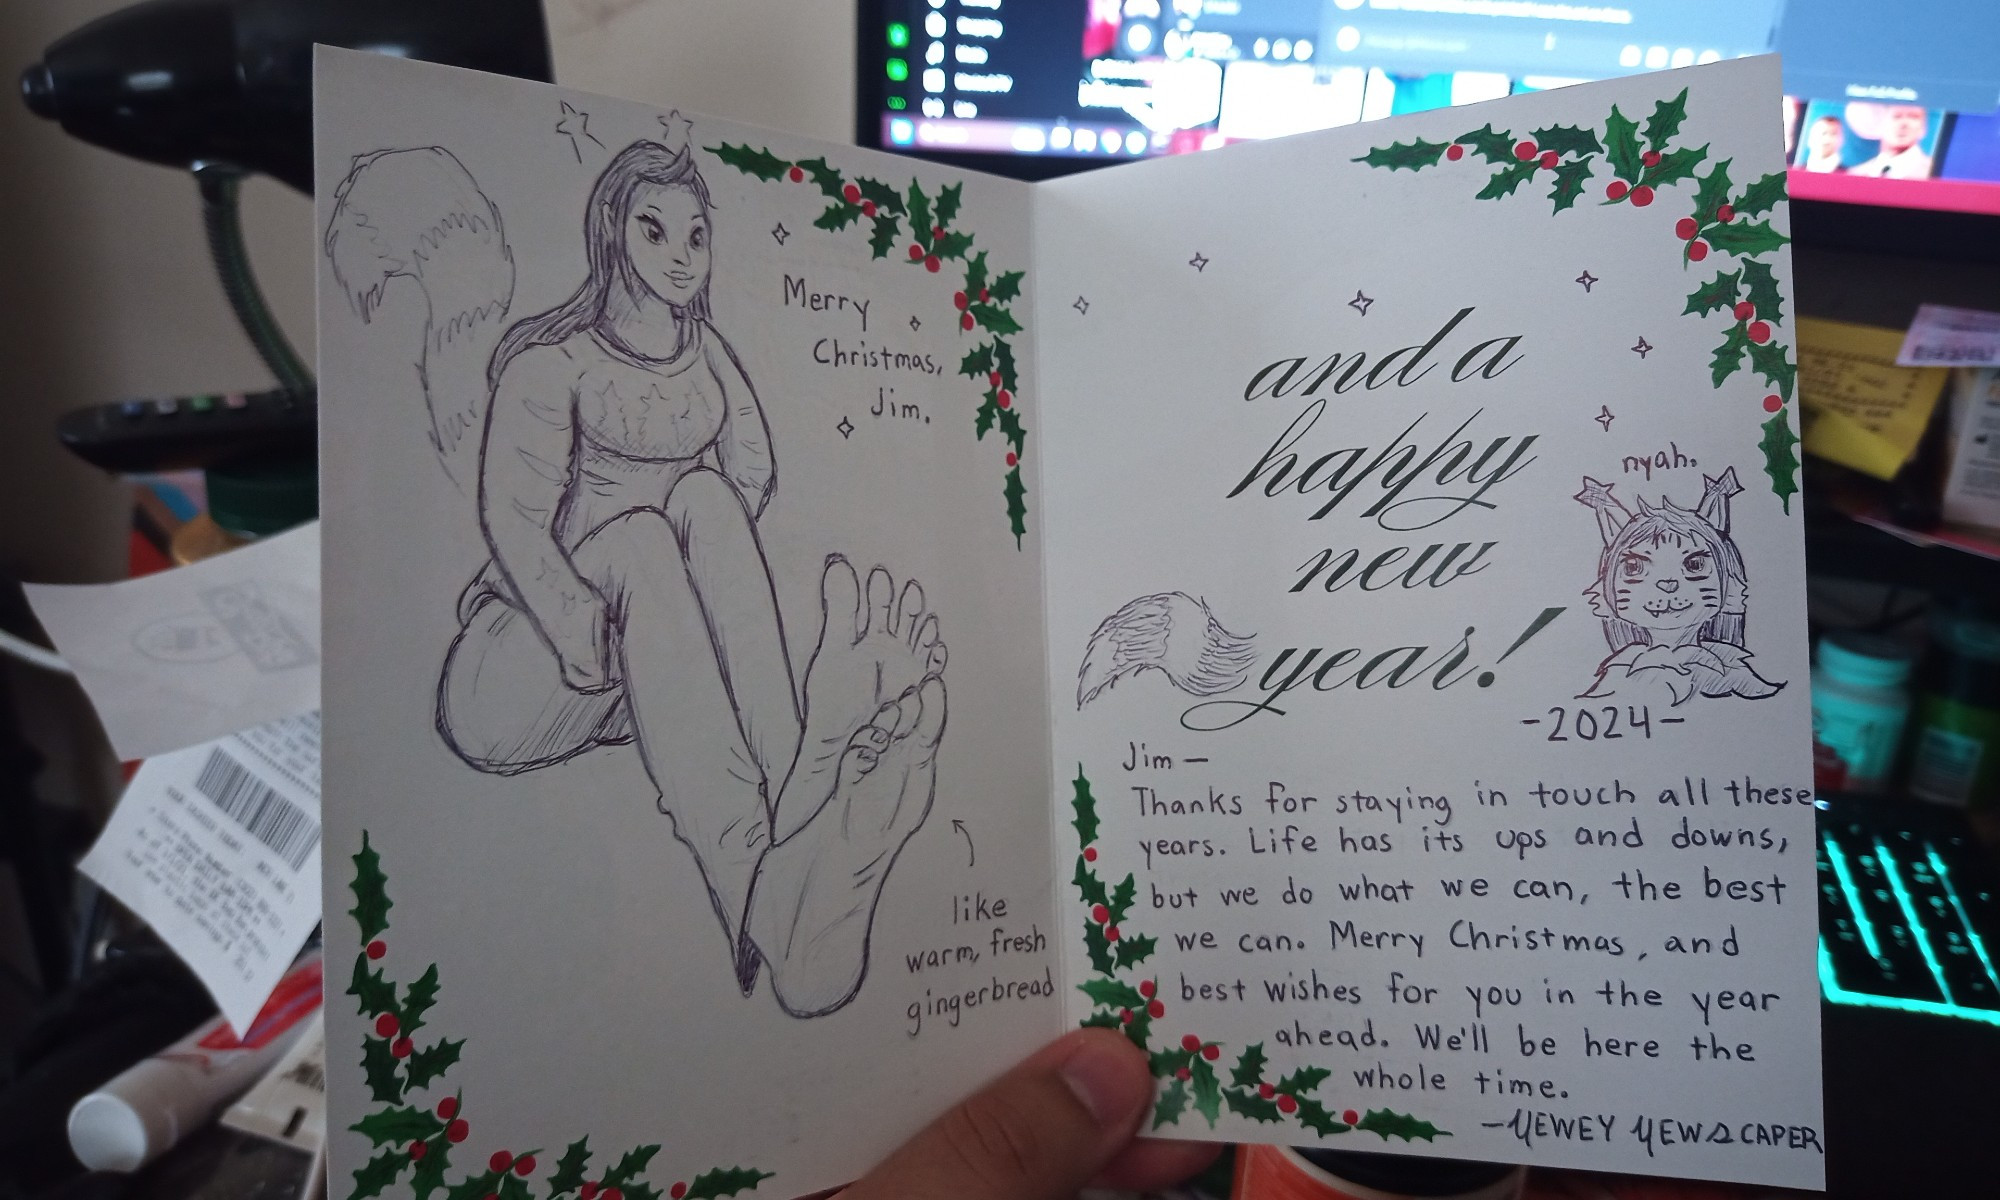 Merry
Christmas,
Jim.
like
warm, fresh
gingerbread
and a
happy
new
year!
nyah.
-2024-
Jim —
Thanks for staying in touch all these
years. Life has its ups and downs,
but we do what we can, the best
we can. Merry Christmas, and
best wishes for you in the year
ahead. We'll be here the
whole time.
—YEWEY YEWSCAPER